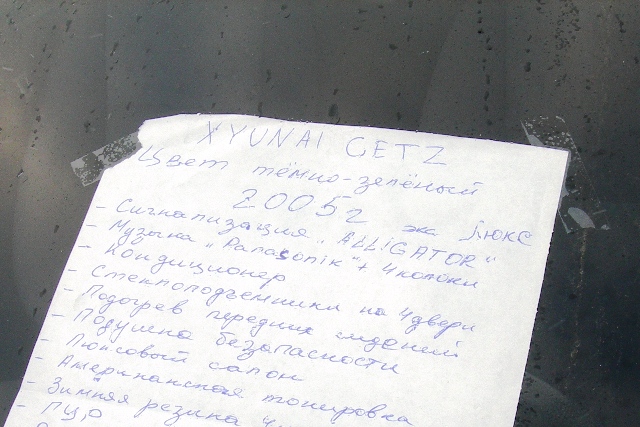 XYUNAI GETZ
Цвет тёмно-зелёный
2005г экс люкс
- Сигнализация "ALLIGATOR"
- Музыка "Panasonik" + 4 колонки
- Кондиционер
- Стеклоподъемники на 4 двери
- Подогрев передних сидений
- Подушка безопасности
- Люксовый салон
- Американская тонировка
- Зимняя резина
- ГЦ,О